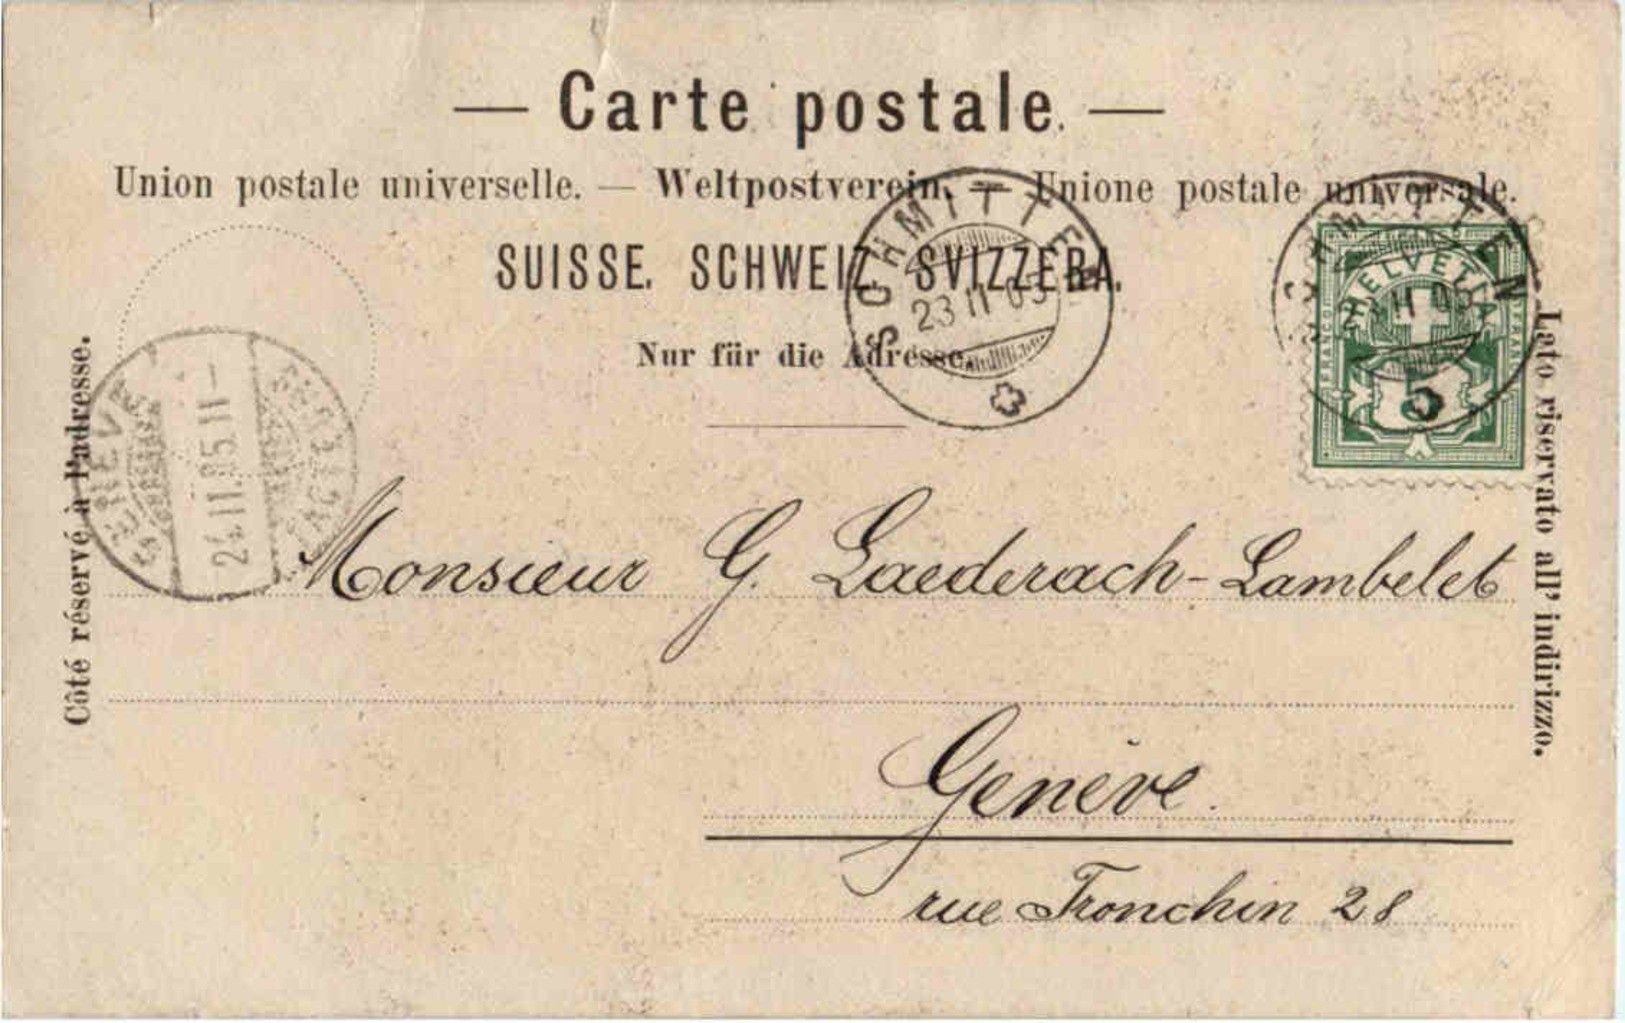 — Carte postale. —
Union postale universelle. — Weltpostverein. — Unione postale universale.
SUISSE. SCHWEIZ. SVIZZERA.
Nur für die Adresse.
Côté réservé à l'adresse.
Lato riservato all' indirizzo.
SCHMITTEN
23 II 05
SCHMITTEN
HELVETIA
FRANCO
5
24.II.05.11-
Monsieur G. Laederach-Lambelet
Genève.
rue Tronchin 28